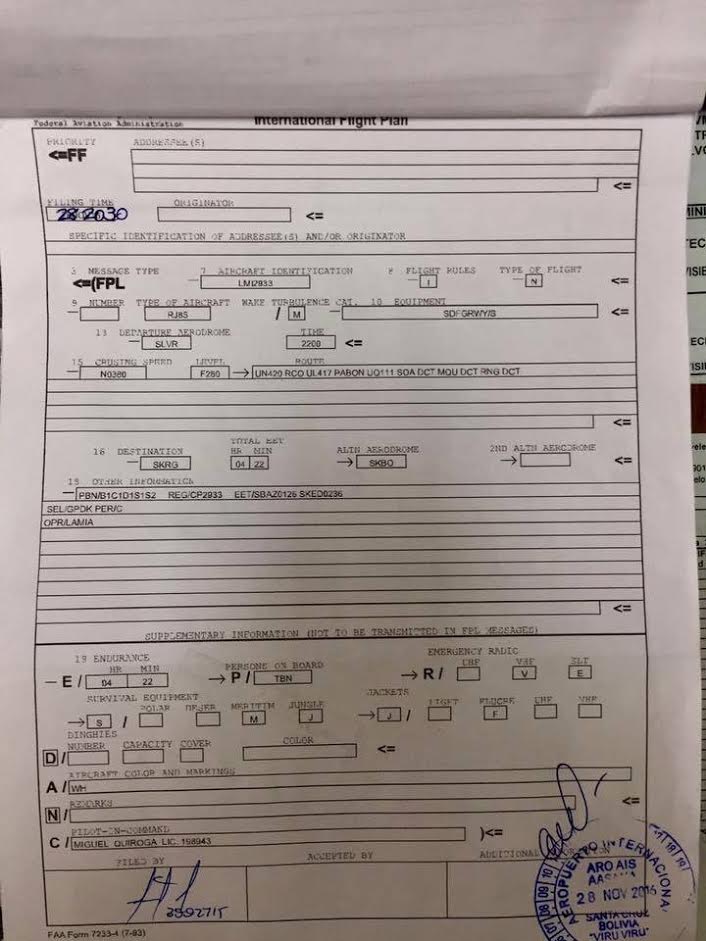 Federal Aviation Administration
International Flight Plan
PRIORITY ADDRESSEE(S)
<=FF
<=
FILING TIME ORIGINATOR
28 2030 <=
SPECIFIC IDENTIFICATION OF ADDRESSEE(S) AND/OR ORIGINATOR
3 MESSAGE TYPE 7 AIRCRAFT IDENTIFICATION 8 FLIGHT RULES TYPE OF FLIGHT
<=(FPL LMI2933 I N <=
9 NUMBER TYPE OF AIRCRAFT WAKE TURBULENCE CAT. 10 EQUIPMENT
RJ85 / M SDFGRWY/S <=
13 DEPARTURE AERODROME TIME
SLVR 2200 <=
15 CRUSING SPEED LEVEL ROUTE
N0380 F280 → UN420 RCO UL417 PABON UQ111 SOA DCT MQU DCT RNG DCT
<=
TOTAL EET
16 DESTINATION HR MIN ALTN AERODROME 2ND ALTN AERODROME
SKRG 04 22 → SKBO → <=
18 OTHER INFORMATION
PBN/B1C1D1S1S2 REG/CP2933 EET/SBAZ0126 SKED0236
SEL/GPDK PER/C
OPR/LAMIA
<=
SUPPLEMENTARY INFORMATION (NOT TO BE TRANSMITTED IN FPL MESSAGES)
19 ENDURANCE EMERGENCY RADIO
HR MIN PERSONS ON BOARD UHF VHF ELT
— E / 04 22 → P / TBN → R / V E
SURVIVAL EQUIPMENT JACKETS
POLAR DESER MERITIM JUNGLE LIGHT FLUORE UHF VHF
→ S / M J → J / F
DINGHIES
NUMBER CAPACITY COVER COLOR
D / <=
AIRCRAFT COLOR AND MARKINGS
A / WH
REMARKS
N / <=
PILOT-IN-COMMAND
C / MIGUEL QUIROGA LIC. 198943 )<=
FILED BY ACCEPTED BY ADDITIONAL
AEROPUERTO INTERNACIONAL
ARO AIS
AASANA
28 NOV 2016
SANTA CRUZ
BOLIVIA
"VIRU VIRU"
FAA Form 7233-4 (7-93)